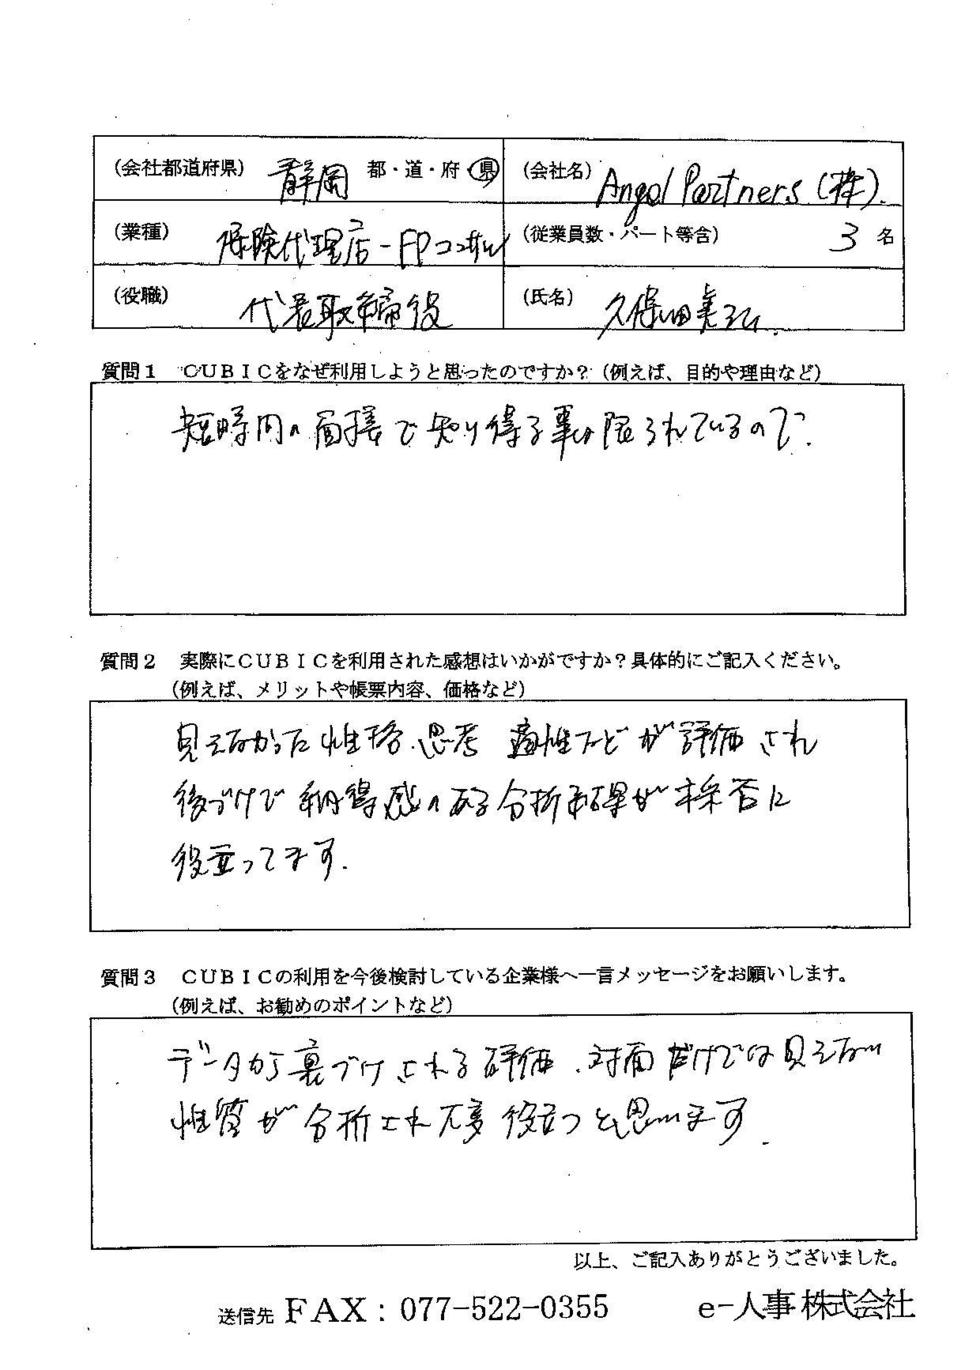 (会社都道府県) 静岡 都・道・府・県 (会社名) Angel Partners (株).
(業種) 保険代理店-FPコンサル (従業員数・パート等含) 3 名
(役職) 代表取締役 (氏名) 久保田
質問1 CUBICをなぜ利用しようと思ったのですか?(例えば、目的や理由など)
短時間の面接で知り得る事は限られているので.
質問2 実際にCUBICを利用された感想はいかがですか?具体的にご記入ください。
(例えば、メリットや帳票内容、価格など)
見えなかった性格、思考 適性などが評価され
後づけで納得感のある分析結果が採否に
役立ってます.
質問3 CUBICの利用を今後検討している企業様へ一言メッセージをお願いします。
(例えば、お勧めのポイントなど)
データから裏づけされる評価、対面だけでは見えない
性質が分析され大変役立つと思います.
以上、ご記入ありがとうございました。
送信先 FAX:077-522-0355 e-人事株式会社